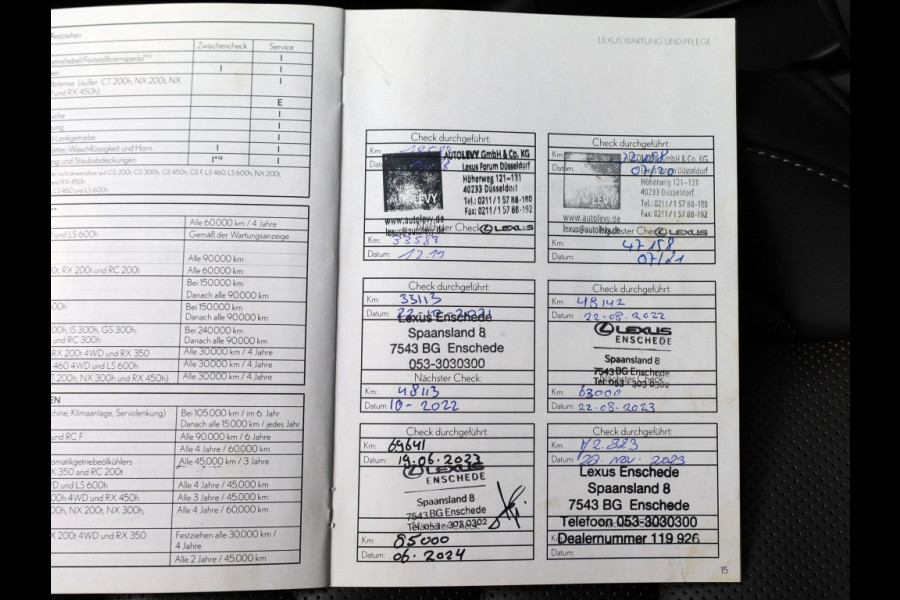 Festziehen
Zwischencheck Service
I
I I
(außer CT 200h, NX 200t, NX
und RX 450h) I
E
I
I
Lenkgetriebe I
Waschflüssigkeit und Horn I I
und Staubabdeckungen I
LS 460 und LS 600h
Alle 60.000 km / 4 Jahre
und LS 600h Gemäß der Wartungsanzeige
Alle 90.000 km
RX 200t und RC 200t Alle 60.000 km
Bei 150.000 km
Danach alle 90.000 km
Bei 150.000 km
Danach alle 90.000 km
IS 300h, GS 300h, Bei 240.000 km
und RC 300h Danach alle 90.000 km
RX 200t 4WD und RX 350 Alle 30.000 km / 4 Jahre
460 4WD und LS 600h Alle 30.000 km / 4 Jahre
200h, NX 300h und RX 450h) Alle 30.000 km / 4 Jahre
EN
Klimaanlage, Servolenkung) Bei 105.000 km / im 6. Jahr
Danach alle 15.000 km / jedes Jahr
und RC F Alle 90.000 km / 6 Jahre
Alle 4 Jahre / 60.000 km
Alle 45.000 km / 3 Jahre
X 350 und RC 200t
und LS 600h Alle 4 Jahre / 45.000 km
4WD und RX 450h Alle 3 Jahre / 45.000 km
NX 200t, NX 300h, Alle 4 Jahre / 60.000 km
X 200t 4WD und RX 350 Festziehen alle 30.000 km /
4 Jahre
Alle 2 Jahre / 45.000 km
LEXUS WARTUNG UND PFLEGE
Check durchgeführt:
Km:
Datum:
AUTOLEVY GmbH & Co. KG
Lexus Forum Düsseldorf
Höherweg 121-131
40233 Düsseldorf
Tel.: 0211/1 57 88-180
Fax: 0211/1 57 88-192
AUTOLEVY
www.autolevy.de
Nächster Check
LEXUS
Km: 33588
Datum: 12.19
Check durchgeführt:
Km:
Datum: 07/20
GmbH & Co. KG
Düsseldorf
Höherweg 121-131
40233 Düsseldorf
Tel.: 0211/1 57 88-180
Fax: 0211/1 57 88-192
LEVY
www.autolevy.de
Nächster Check
LEXUS
Km: 47158
Datum: 07/21
Check durchgeführt:
Km: 33113
Datum:
Lexus Enschede
Spaansland 8
7543 BG Enschede
053-3030300
Nächster Check:
Km: 48113
Datum: 10-2022
Check durchgeführt:
Km: 48142
Datum: 22-08-2022
LEXUS
ENSCHEDE
Spaansland 8
7543 BG Enschede
Tel. 053 - 303 0302
Km: 63000
Datum: 22-08-2023
Check durchgeführt:
Km: 69641
Datum: 19.06.2023
LEXUS
ENSCHEDE
Spaansland 8
7543 BG Enschede
Tel. 053 - 303 0302
Km: 85000
Datum: 06.2024
Check durchgeführt:
Km: 72.823
Datum: 28 nov. 2023
Lexus Enschede
Spaansland 8
7543 BG Enschede
Telefoon 053-3030300
Dealernummer 119 926
Datum:
15